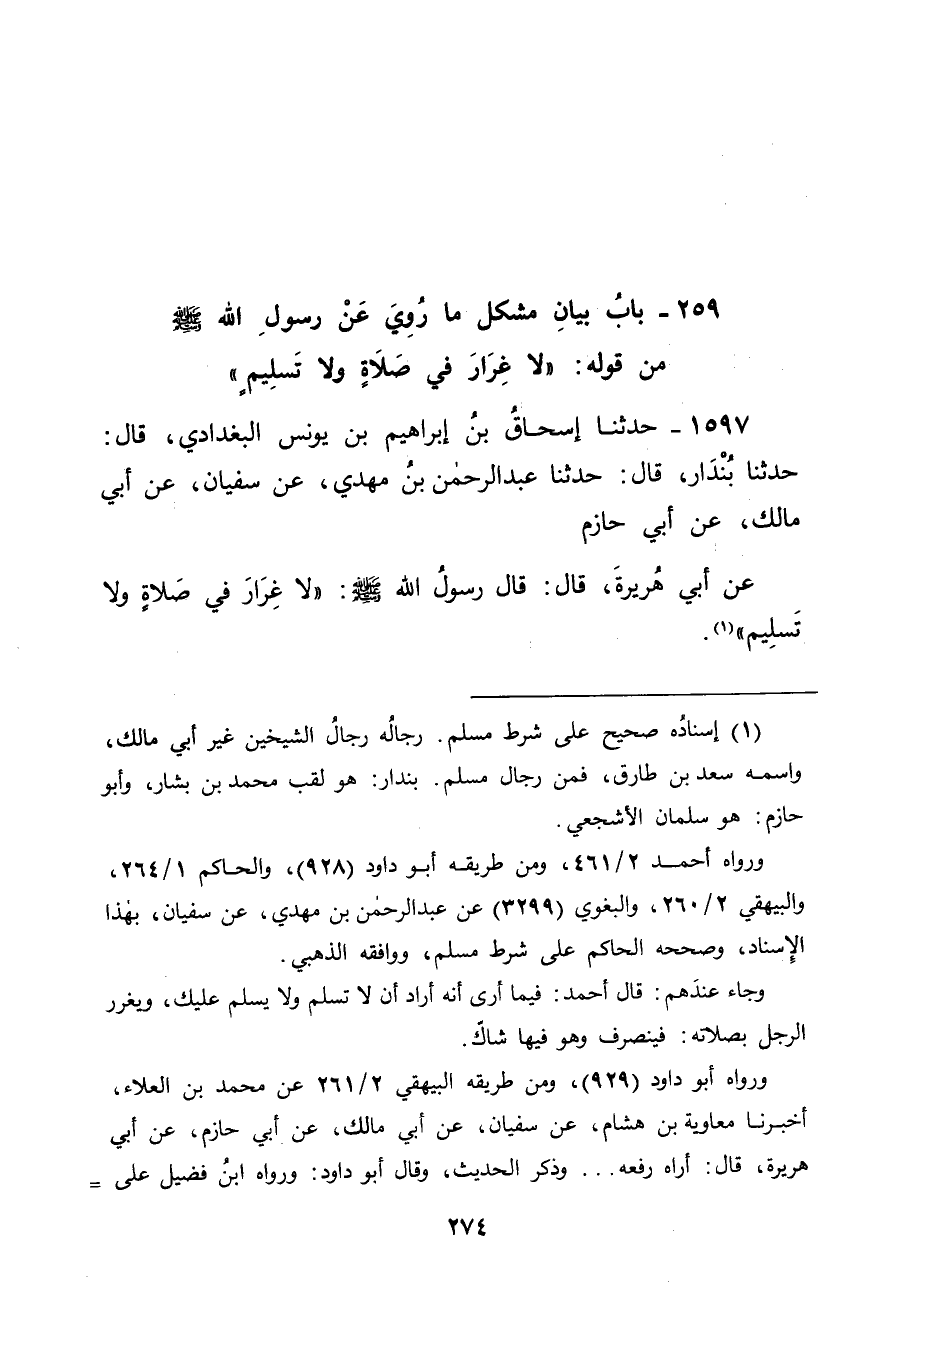 ٢٥٩ - بابُ بيانِ مشكل ما رُوِيَ عَنْ رسولِ الله ﷺ
من قوله: «لا غِرَارَ في صَلَاةٍ ولا تَسلِيمٍ»
١٥٩٧ - حدثنا إسحاقُ بنُ إبراهيم بن يونس البغدادي، قال:
حدثنا بُنْدَار، قال: حدثنا عبدالرحمٰن بنُ مهدي، عن سفيان، عن أبي
مالك، عن أبي حازم
عن أبي هُريرةَ، قال: قال رسولُ الله ﷺ: «لا غِرَارَ في صَلاةٍ ولا
تَسلِيم»(١).
(١) إسنادُه صحيح على شرط مسلم. رجالُه رجالُ الشيخين غير أبي مالك،
واسمه سعد بن طارق، فمن رجال مسلم. بندار: هو لقب محمد بن بشار، وأبو
حازم: هو سلمان الأشجعي.
ورواه أحمد ٤٦١/٢، ومن طريقه أبو داود (٩٢٨)، والحاكم ٢٦٤/١،
والبيهقي ٢٦٠/٢، والبغوي (٣٢٩٩) عن عبدالرحمٰن بن مهدي، عن سفيان، بهٰذا
الإِسناد، وصححه الحاكم على شرط مسلم، ووافقه الذهبي.
وجاء عندَهم: قال أحمد: فيما أرى أنه أراد أن لا تسلم ولا يسلم عليك، ويغرر
الرجل بصلاته: فينصرف وهو فيها شاكّ.
ورواه أبو داود (٩٢٩)، ومن طريقه البيهقي ٢٦١/٢ عن محمد بن العلاء،
أخبرنا معاوية بن هشام، عن سفيان، عن أبي مالك، عن أبي حازم، عن أبي
هريرة، قال: أراه رفعه... وذكر الحديث، وقال أبو داود: ورواه ابنُ فضيل على =
٢٧٤